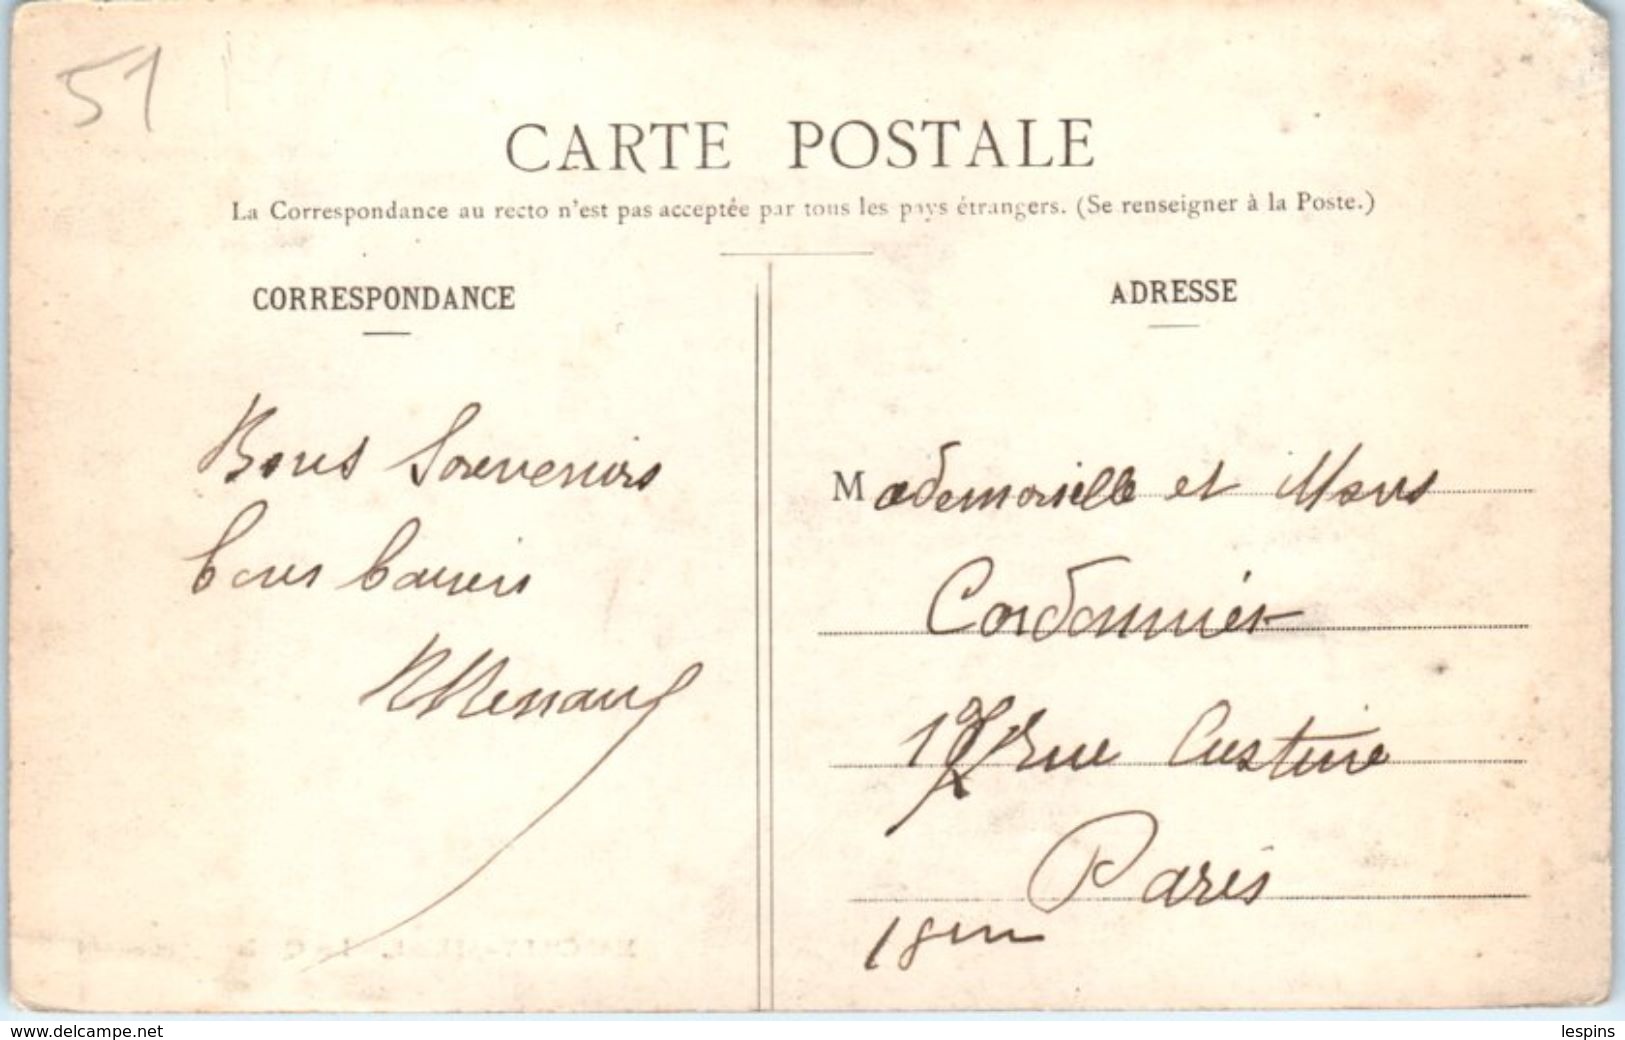 51
CARTE POSTALE
La Correspondance au recto n'est pas acceptée par tous les pays étrangers. (Se renseigner à la Poste.)
CORRESPONDANCE
Bons Souvenirs
bons baisers
ADRESSE
Mademoiselle et Mons
Cordonnier
rue Custine
Paris
18em
www.delcampe.net
lespins